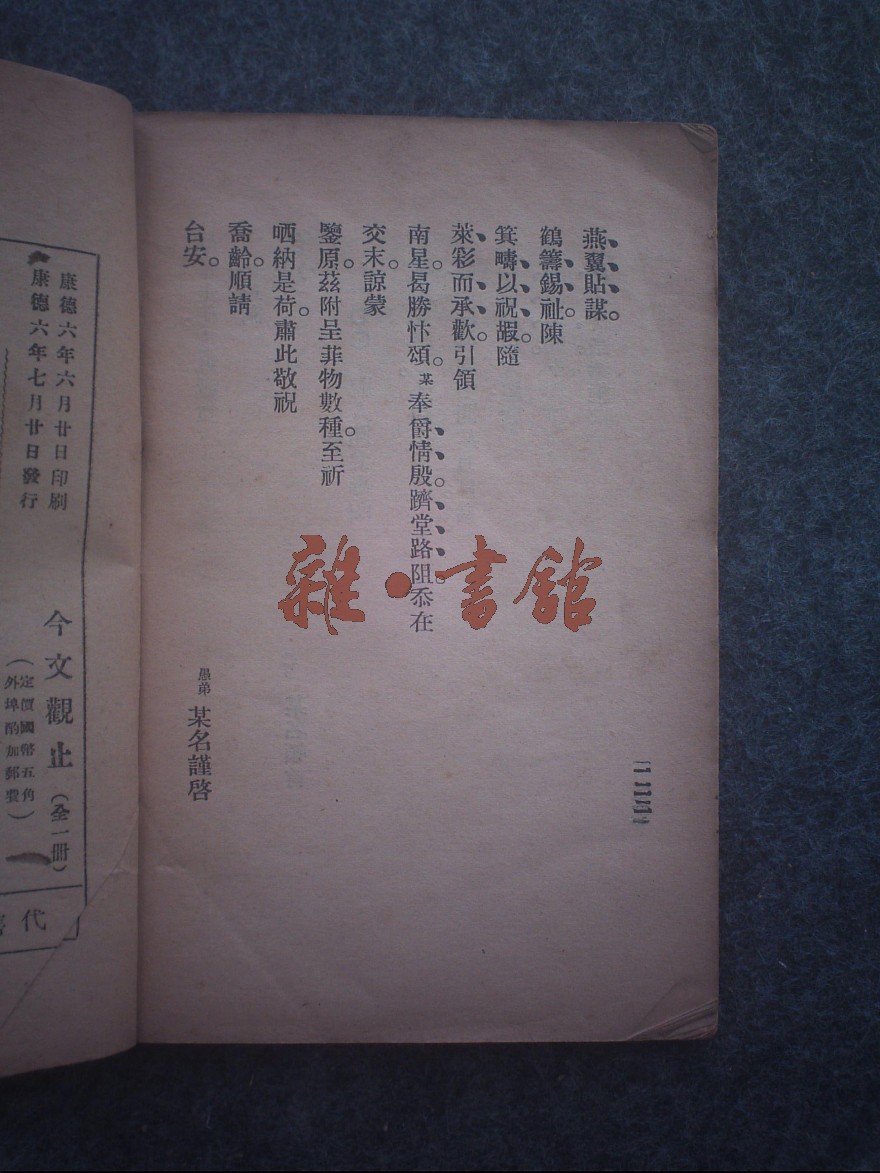 燕翼貽謀。
鶴籌錫祉。陳
箕疇以祝嘏。隨
萊彩而承歡。引領
南星。曷勝忭頌。某奉爵情殷。躋堂路阻。忝在
交末。諒蒙
鑒原。茲附呈菲物數種。至祈
哂納是荷。肅此敬祝
喬齡。順請
台安。
愚弟 某名謹啓
雜·書館
康德六年六月廿日印刷
康德六年七月廿日發行
今文觀止（全一冊）
（定價國幣五角
外埠酌加郵費）
代